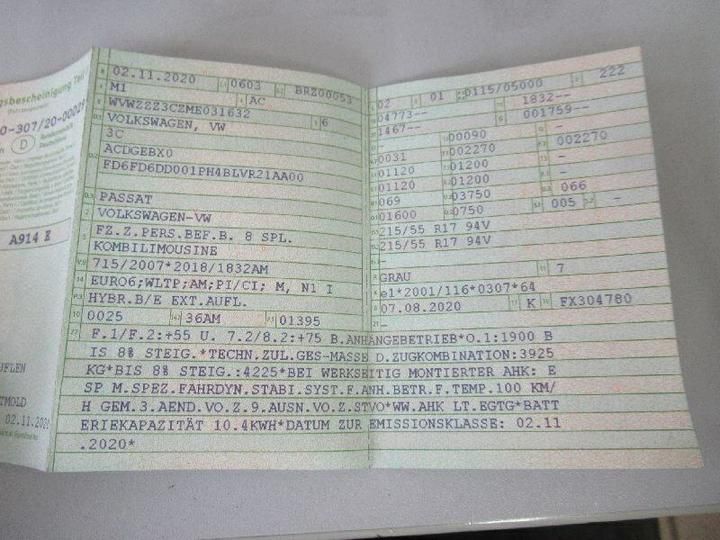 gsbescheinigung Teil
0-307/20-00025
D
A914 E
UFLEN
TMOLD
02.11.202
02.11.2020 0603 BRZ00053
M1 AC
WVWZZZ3CZME031632 6
VOLKSWAGEN, VW
3C
ACDGEBX0
FD6FD6DD001PH4BLVR21AA00
PASSAT
VOLKSWAGEN-VW
FZ.Z.PERS.BEF.B. 8 SPL.
KOMBILIMOUSINE
715/2007*2018/1832AM
EURO6;WLTP;AM;PI/CI; M, N1 I
HYBR.B/E EXT.AUFL.
0025 36AM 01395
02 01 0115/05000 222
04773-- 1832--
1467-- 001759--
00090 -
0031 002270 002270
01120 01200 -
01120 01200 -
069 03750 066
01600 0750 005 -
215/55 R17 94V
215/55 R17 94V
-
GRAU 7
e1*2001/116*0307*64
07.08.2020 K FX304780
-
F.1/F.2:+55 U. 7.2/8.2:+75 B.ANHÄNGEBETRIEB*O.1:1900 B
IS 8% STEIG.*TECHN.ZUL.GES-MASSE D.ZUGKOMBINATION:3925
KG*BIS 8% STEIG.:4225*BEI WERKSEITIG MONTIERTER AHK: E
SP M.SPEZ.FAHRDYN.STABI.SYST.F.ANH.BETR.F.TEMP.100 KM/
H GEM.3.AEND.VO.Z.9.AUSN.VO.Z.STVO*WW.AHK LT.EGTG*BATT
ERIEKAPAZITÄT 10.4KWH*DATUM ZUR EMISSIONSKLASSE: 02.11
.2020*